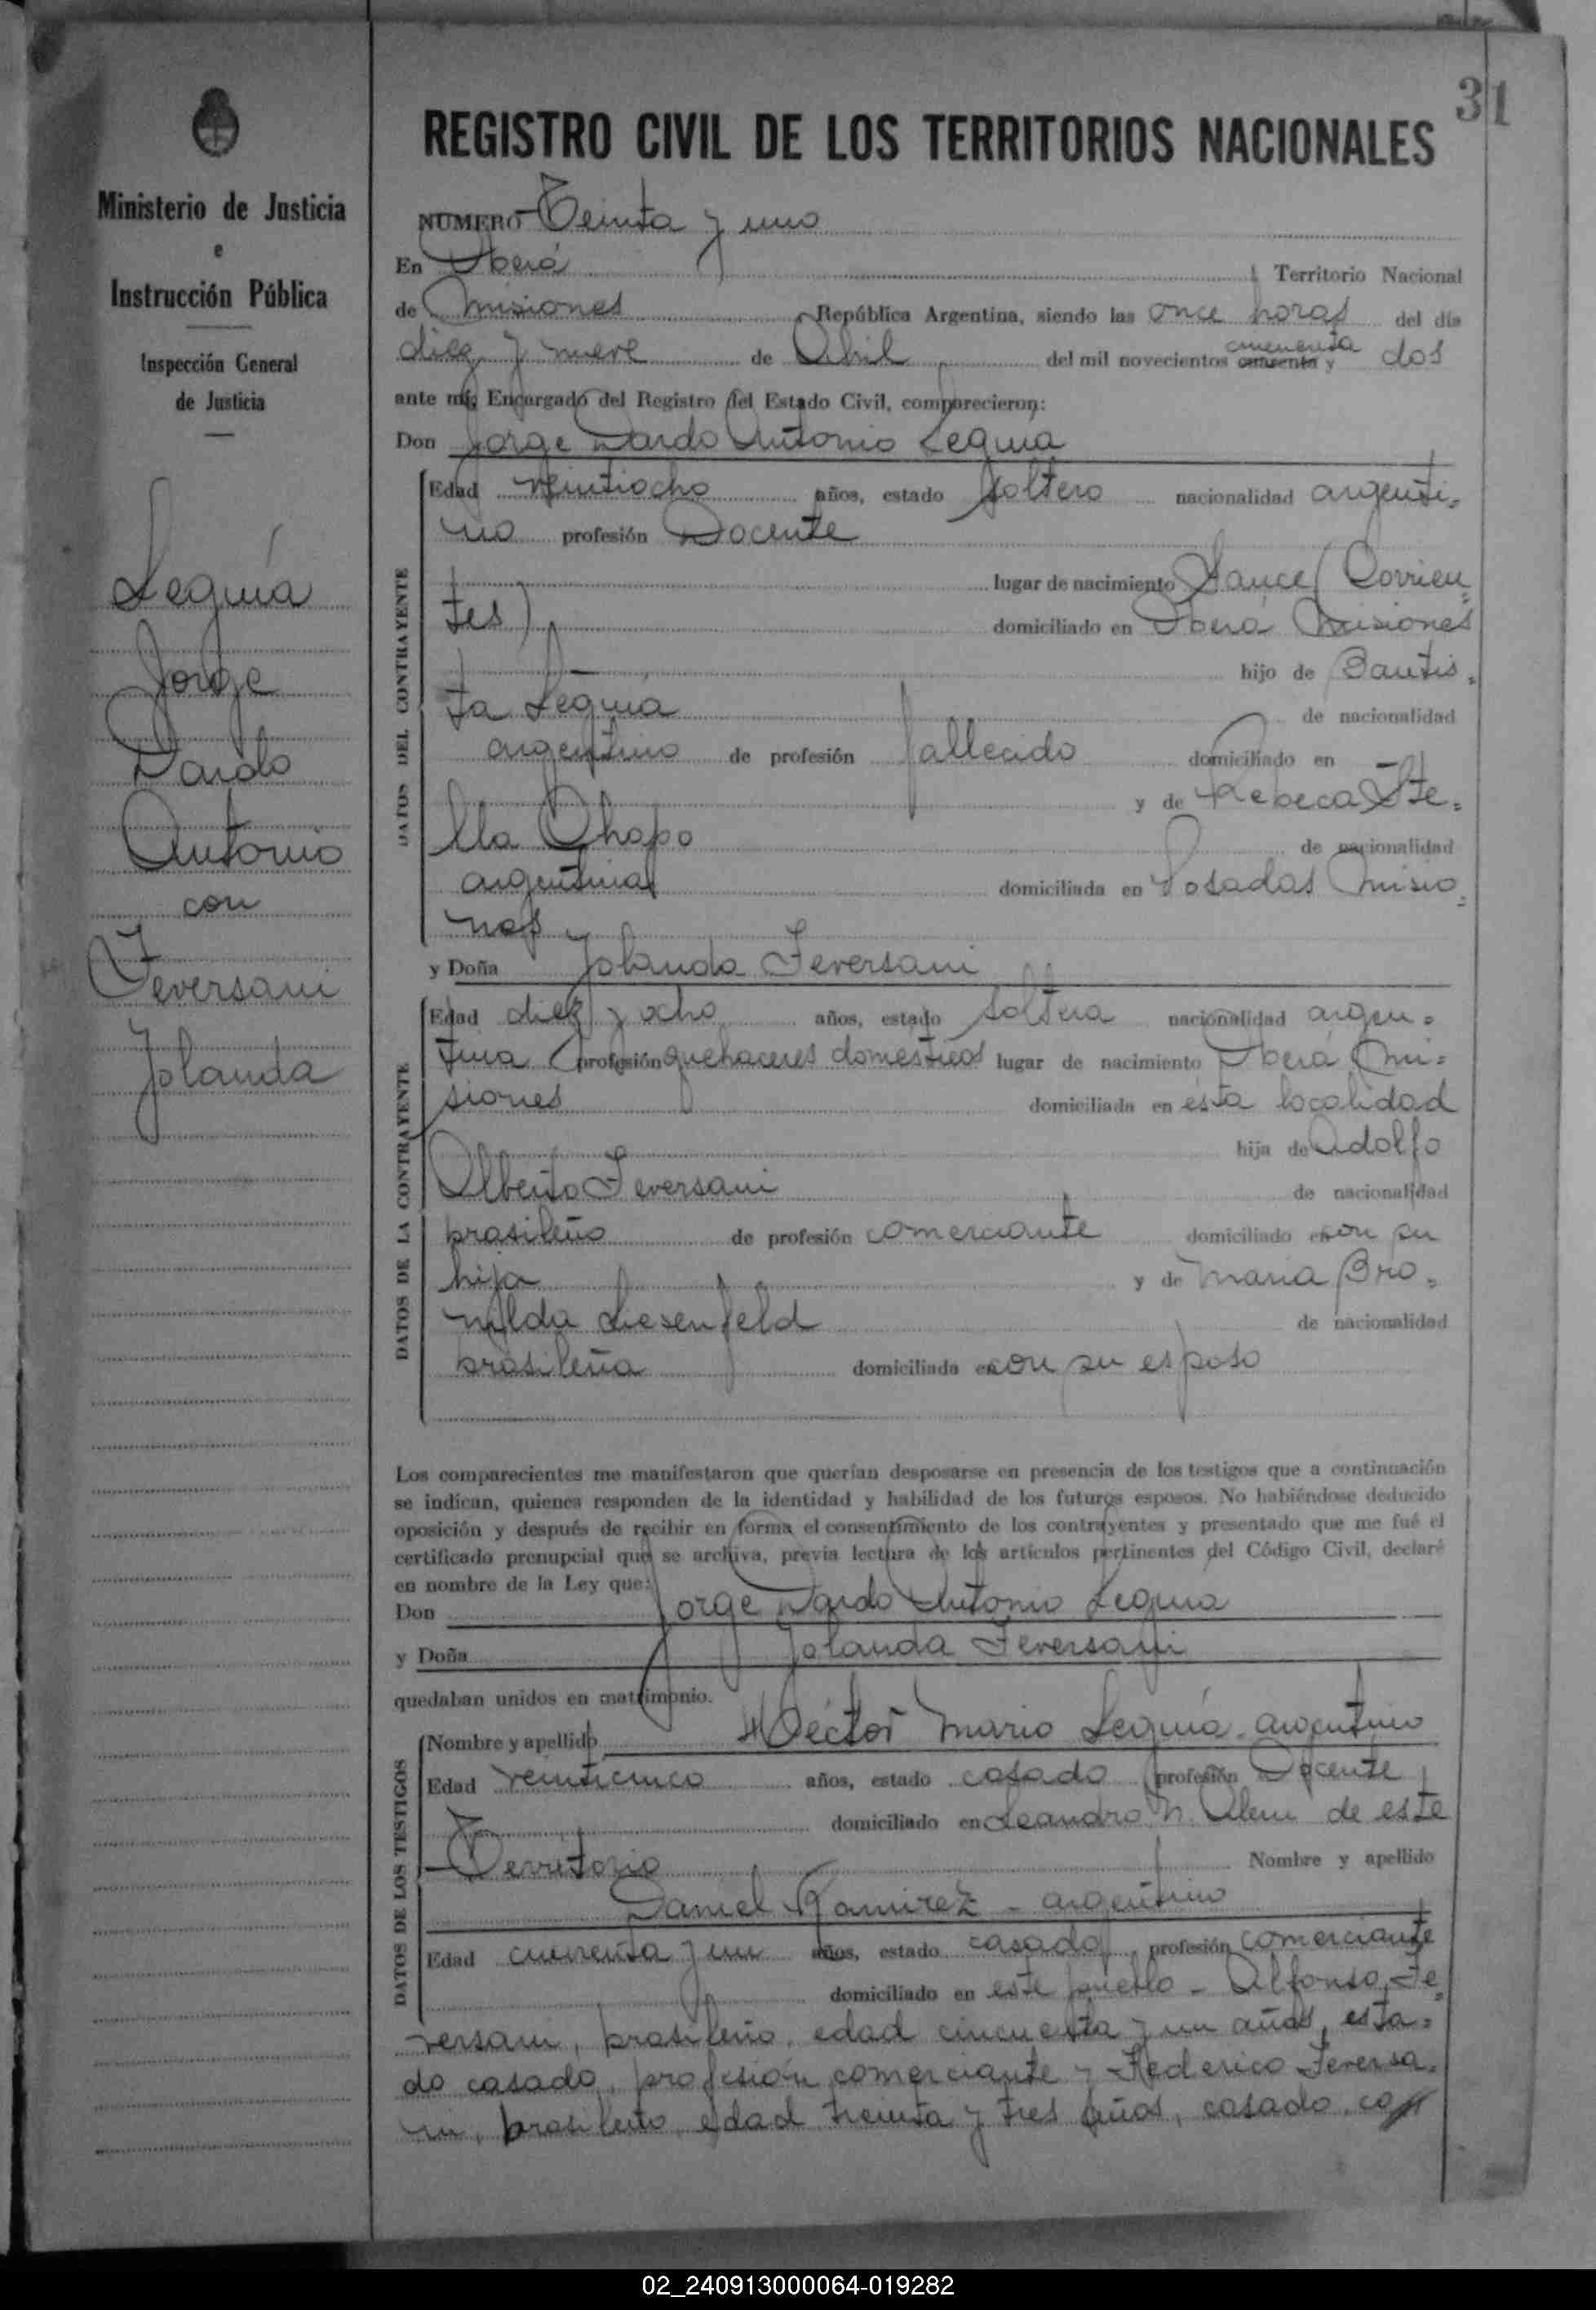 31
REGISTRO CIVIL DE LOS TERRITORIOS NACIONALES
Ministerio de Justicia
e
Instrucción Pública
Inspección General
de Justicia
Leguía
Jorge
Dardo
Antonio
con
Feversani
Jolanda
NUMERO Treinta y uno
En Oberá Territorio Nacional
de Misiones República Argentina, siendo las once horas del día
diez y nueve de Abril del mil novecientos cuarenta y cincuenta dos
ante mí, Encargado del Registro del Estado Civil, comparecieron:
Don Jorge Dardo Antonio Leguía
DATOS DEL CONTRAYENTE
Edad veintiocho años, estado soltero nacionalidad argenti=
no profesión Docente
lugar de nacimiento Sauce (Corrien=
tes) domiciliado en Oberá Misiones
hijo de Bautis=
ta Leguía de nacionalidad
argentino de profesión fallecido domiciliado en
y de Rebeca Ste=
lla Chapo de nacionalidad
argentina domiciliada en Posadas Misio=
nes
y Doña Jolanda Feversani
DATOS DE LA CONTRAYENTE
Edad diez y ocho años, estado soltera nacionalidad argen=
tina profesión quehaceres domesticos lugar de nacimiento Oberá Mi=
siones domiciliada en esta localidad
hija de Adolfo
Alberto Feversani de nacionalidad
brasileño de profesión comerciante domiciliado en con su
hija y de Maria Bro=
nilda Liesenfeld de nacionalidad
brasileña domiciliada en con su esposo
Los comparecientes me manifestaron que querían desposarse en presencia de los testigos que a continuación
se indican, quienes responden de la identidad y habilidad de los futuros esposos. No habiéndose deducido
oposición y después de recibir en forma el consentimiento de los contrayentes y presentado que me fué el
certificado prenupcial que se archiva, previa lectura de los artículos pertinentes del Código Civil, declaré
en nombre de la Ley que:
Don Jorge Dardo Antonio Leguia
y Doña Jolanda Feversani
quedaban unidos en matrimonio.
DATOS DE LOS TESTIGOS
Nombre y apellido Héctor Mario Leguía - argentino
Edad veinticinco años, estado casado profesión Docente
domiciliado en Leandro N. Alem de este
Territorio Nombre y apellido
Daniel Ramirez - argentino
Edad cuarenta y un años, estado casado profesión comerciante
domiciliado en este pueblo - Alfonso Fe=
versani, brasileño, edad cincuenta y un años, esta=
do casado, profesión comerciante y Federico Feversa=
ni, brasileño, edad treinta y tres años, casado, co
02_240913000064-019282